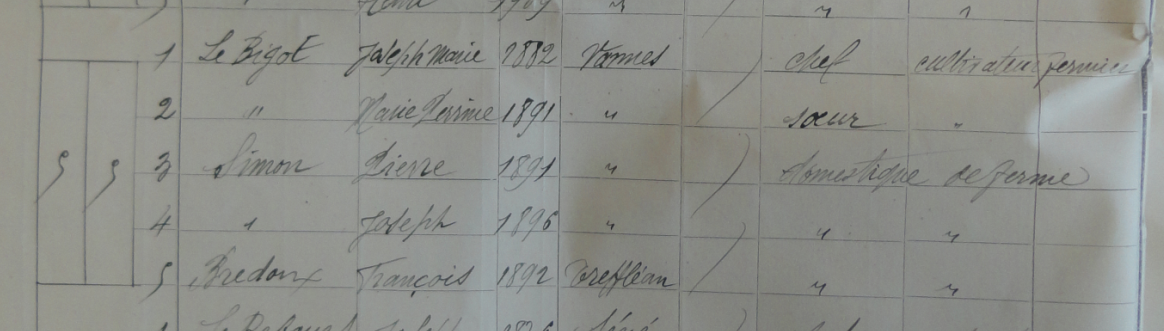 5 1909 " " "
1 Le Bigot Joseph Marie 1882 Vannes ) chef cultivateur fermier
2 " Marie Perrine 1891 " ) sœur "
5 5 3 Simon Pierre 1891 " ) domestique de ferme
4 " Joseph 1896 " ) " "
5 Bredoux François 1892 Treffléan ) " "
1 Joseph Séné